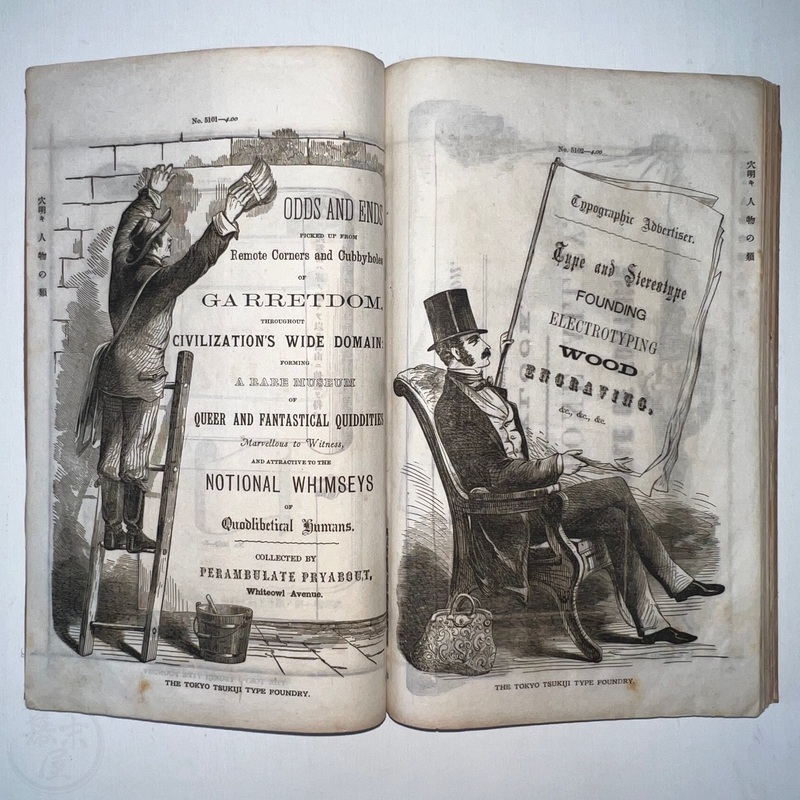 No. 5101—4.00
ODDS AND ENDS
PICKED UP FROM
Remote Corners and Cubbyholes
OF
GARRETDOM,
THROUGHOUT
CIVILIZATION'S WIDE DOMAIN:
FORMING
A RARE MUSEUM
OF
QUEER AND FANTASTICAL QUIDDITIES
Marvellous to Witness,
AND ATTRACTIVE TO THE
NOTIONAL WHIMSEYS
OF
Quodlibetical Humans.
COLLECTED BY
PERAMBULATE PRYABOUT,
Whiteowl Avenue.
穴明キ人物の類
THE TOKYO TSUKIJI TYPE FOUNDRY.
No. 5102—4.00
Typographic Advertiser.
Type and Stereotype
FOUNDING
ELECTROTYPING
WOOD
ENGRAVING,
&c., &c., &c.
穴明キ人物の類
THE TOKYO TSUKIJI TYPE FOUNDRY.